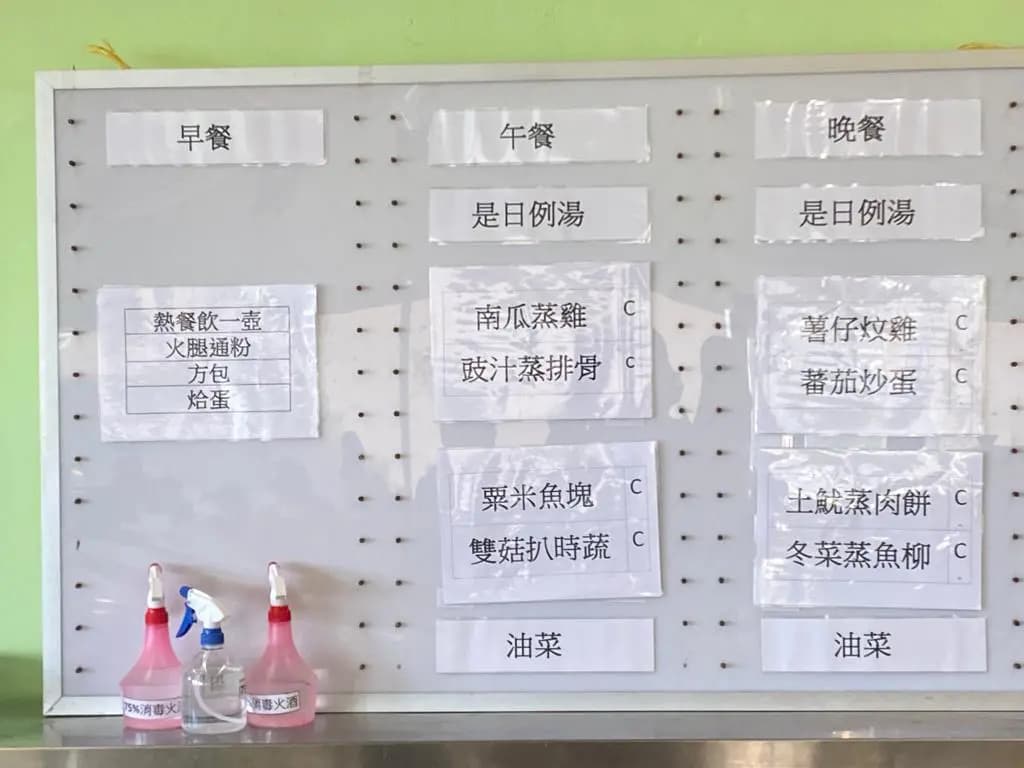 早餐
熱餐飲一壺
火腿通粉
方包
烚蛋
午餐
是日例湯
南瓜蒸雞 C
豉汁蒸排骨 C
粟米魚塊 C
雙菇扒時蔬 C
油菜
晚餐
是日例湯
薯仔炆雞 C
蕃茄炒蛋 C
土魷蒸肉餅 C
冬菜蒸魚柳 C
油菜
75%消毒火酒
消毒火酒